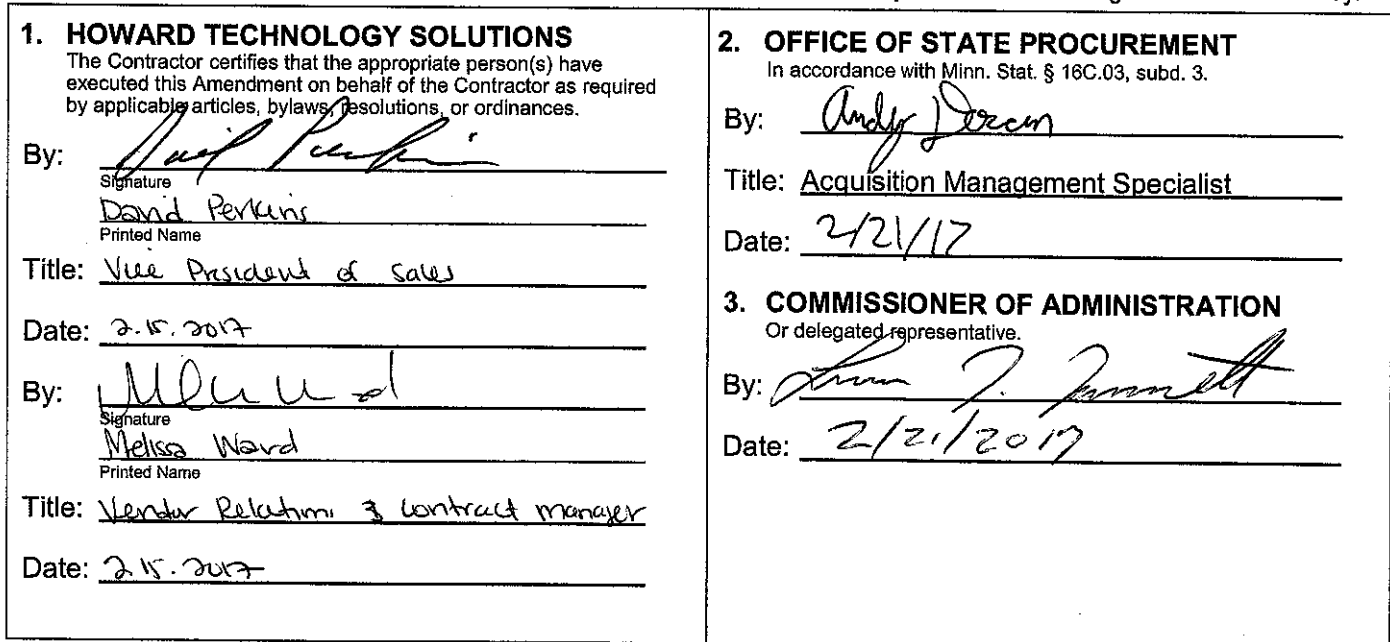 1. HOWARD TECHNOLOGY SOLUTIONS
The Contractor certifies that the appropriate person(s) have
executed this Amendment on behalf of the Contractor as required
by applicable articles, bylaws, resolutions, or ordinances.
By:
Signature
David Perkins
Printed Name
Title: Vice President of Sales
Date: 2.15.2017
By:
Signature
Melissa Ward
Printed Name
Title: Vendor Relations & Contract manager
Date: 2.15.2017
2. OFFICE OF STATE PROCUREMENT
In accordance with Minn. Stat. § 16C.03, subd. 3.
By: Andy Doran
Title: Acquisition Management Specialist
Date: 2/21/17
3. COMMISSIONER OF ADMINISTRATION
Or delegated representative.
By:
Date: 2/21/2017